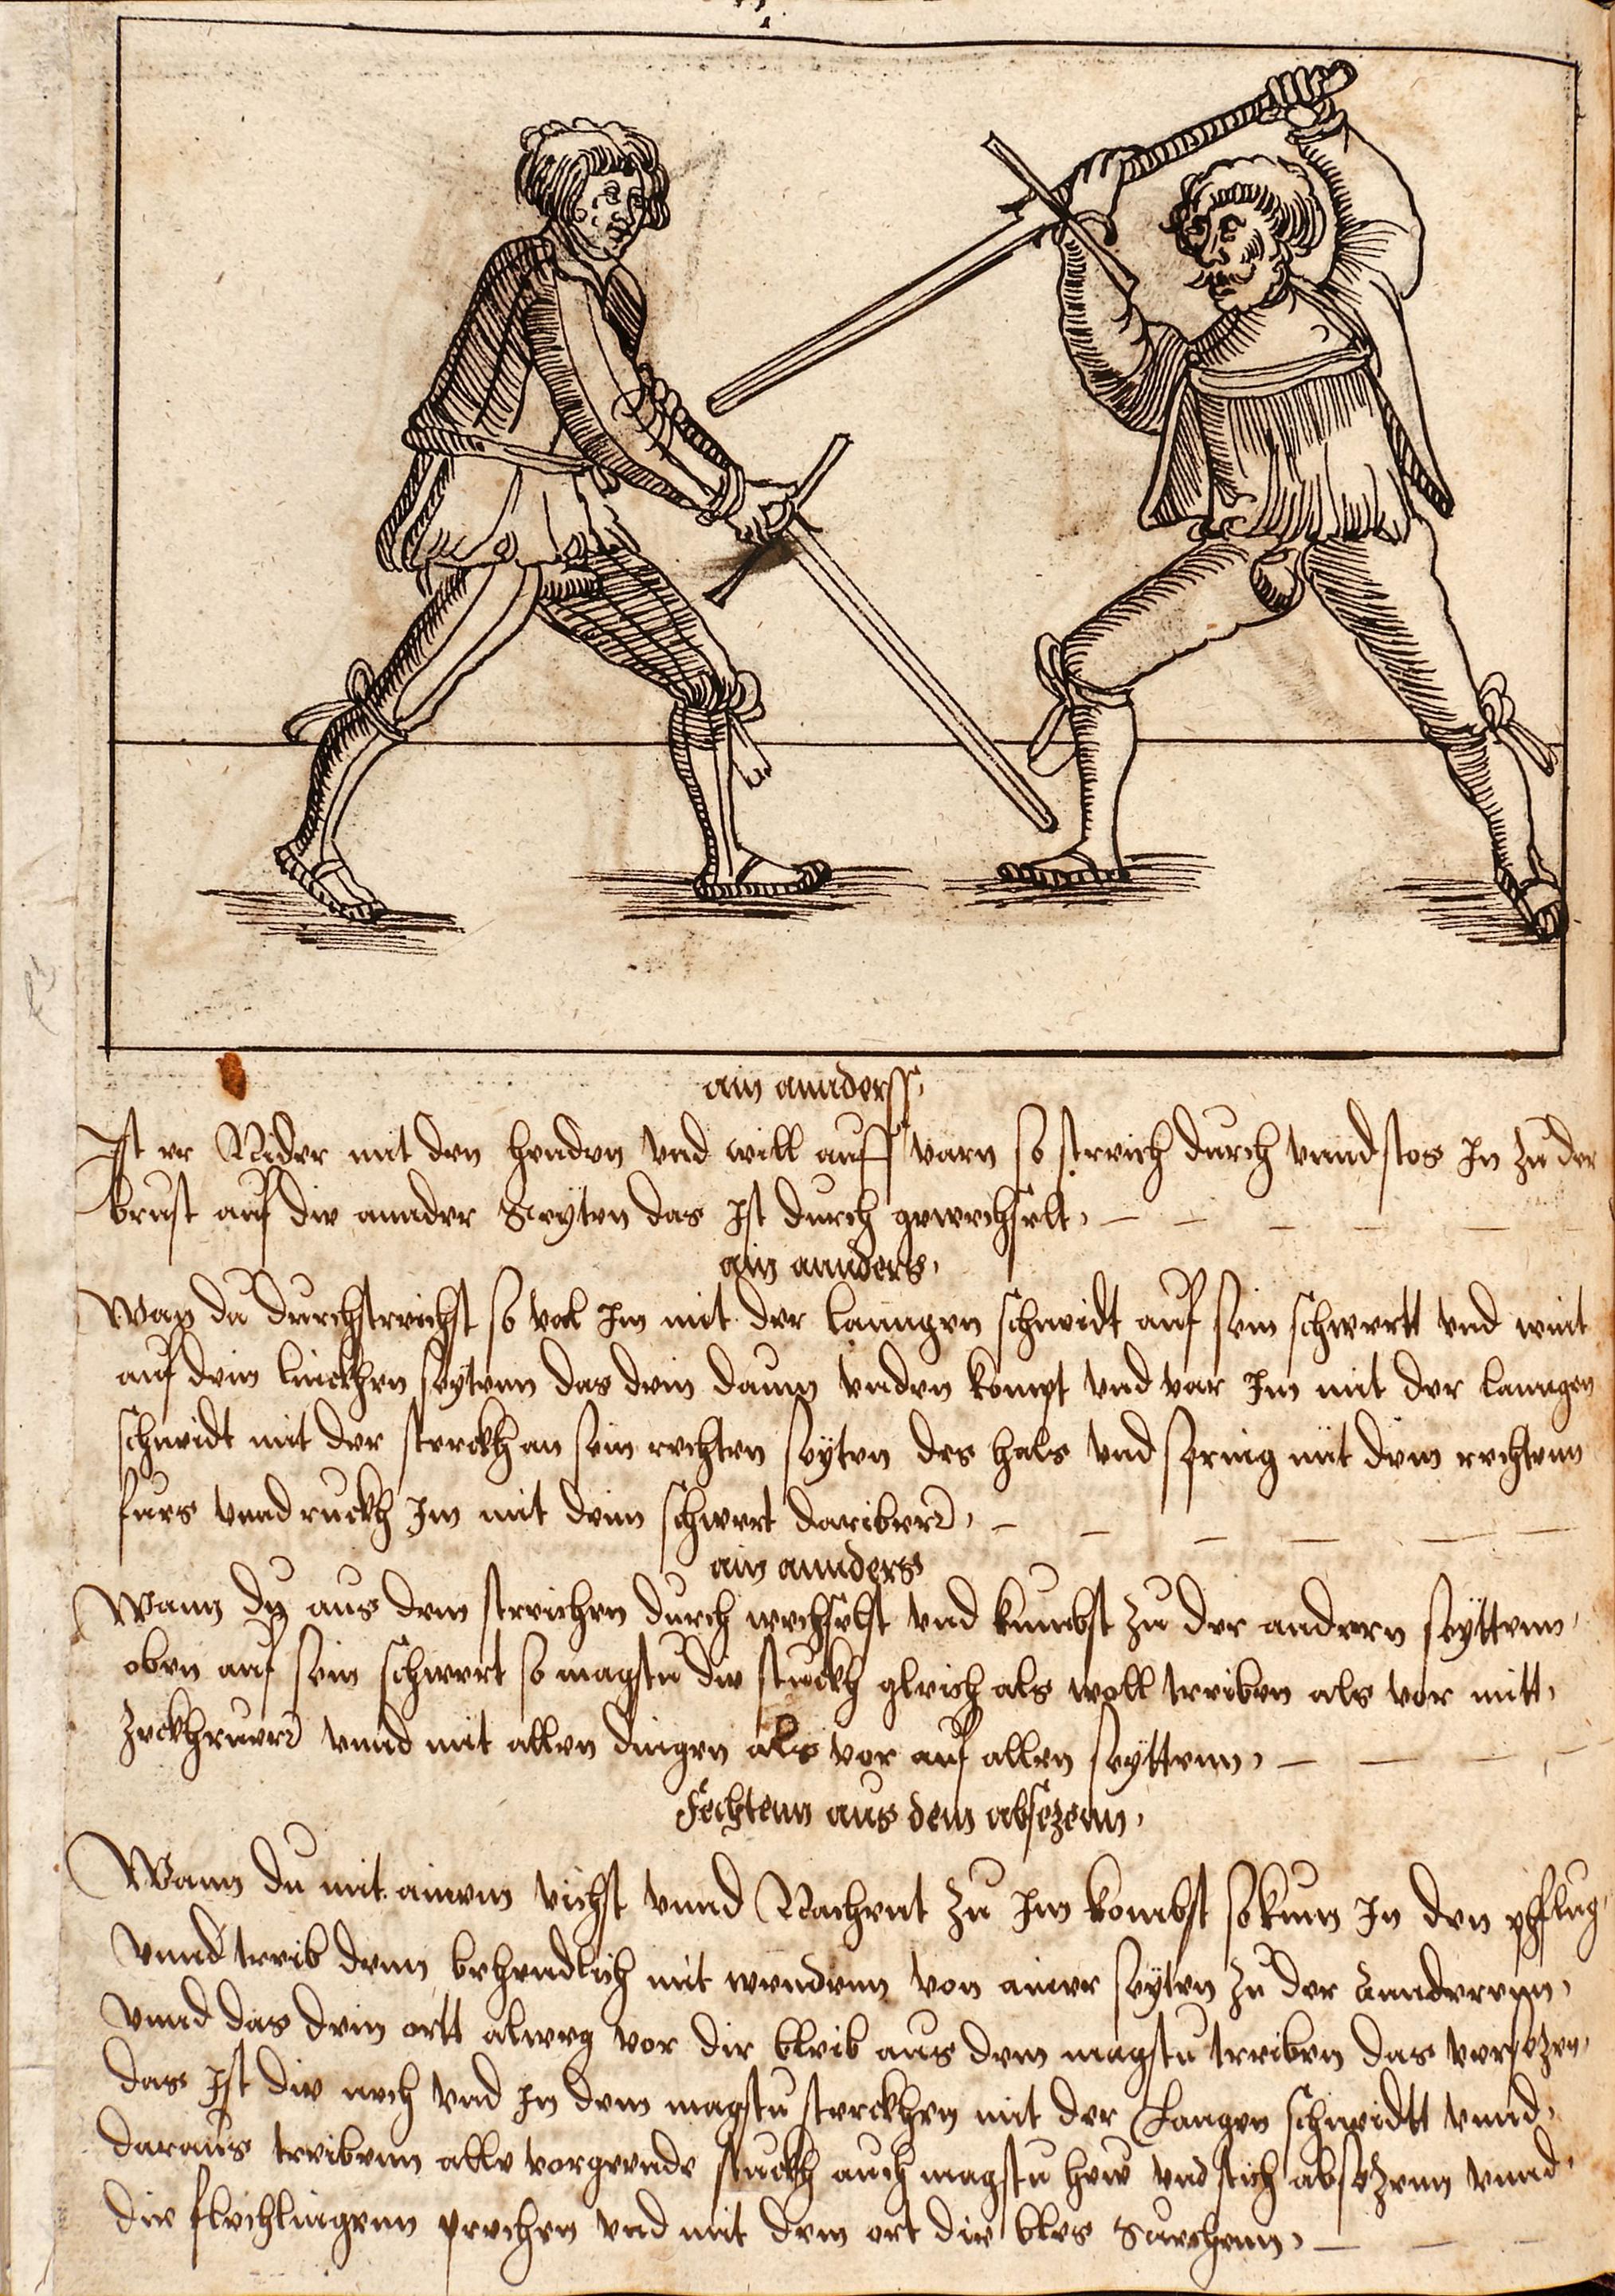 ain annderss,
Ist er Nider mit den henden vnd will auff varn so streich durch vnnd stos In zu der
brust auf die annder Seÿten das Ist durch gewechselt,
ain annders,
Wan du durchstreichst so val Im mit der lanngen schneidt auf sein schwertt vnd wint
auf dein linckhen seÿtenn das dein daum vnden kompt vnd var Im mit der lanngen
schneidt mit der sterckh an sein rechten seÿten des hals vnd spring mit dem rechtenn
fues vnnd ruckh Im mit deim schwert dariberr,
ain annders
Wann dÿ aus dem streichen durch wechselst vnd kumbst zu der andern seÿttenn,
oben auf sein schwert so magstu die stuckh gleich als woll treiben als vor mitt,
zeckhruerr vnnd mit allen dingen als vor auf allen seÿttenn,
Fechtenn aus dem absezenn,
Wann du mit ainem vichst vnnd Nachent zu Im kombst so kum In den pfflug,
vnnd treib denn behendlich mit wendenn von ainer seÿten zu der annderenn,
vnnd das dein ortt alweg vor dir bleib aus dem magstu treiben das versezen,
das Ist die nech vnd In dem magstu sterckhen mit der Langen schneidtt vnnd,
daraus treibenn alle vorgeende stuckh auch magstu hew vnd stich absezenn vnnd,
die flechlingenn prechen vnd mit dem ort die bles Suechenn,